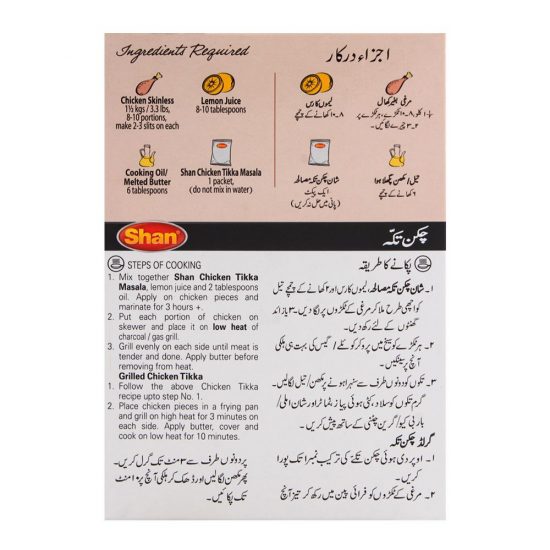 Ingredients Required
Chicken Skinless
1½ kgs / 3.3 lbs,
8-10 portions,
make 2-3 slits on each
Lemon Juice
8-10 tablespoons
Cooking Oil/
Melted Butter
6 tablespoons
Shan Chicken Tikka Masala
1 packet,
(do not mix in water)
اجزاء درکار
مرغی بغیر کھال
لیموں کا رس
۸-۱۰ کھانے کے چمچے
تیل/مکھن پگھلا ہوا
۶ کھانے کے چمچے
شان چکن تکہ مصالحہ
ایک پیکٹ
(پانی میں حل نہ کریں)
Shan®
چکن تکہ
STEPS OF COOKING
1. Mix together Shan Chicken Tikka
Masala, lemon juice and 2 tablespoons
oil. Apply on chicken pieces and
marinate for 3 hours +.
2. Put each portion of chicken on
skewer and place it on low heat of
charcoal / gas grill.
3. Grill evenly on each side until meat is
tender and done. Apply butter before
removing from heat.
Grilled Chicken Tikka
1. Follow the above Chicken Tikka
recipe upto step No. 1.
2. Place chicken pieces in a frying pan
and grill on high heat for 3 minutes on
each side. Apply butter, cover and
cook on low heat for 10 minutes.
پکانے کا طریقہ
۱۔ شان چکن تکہ مصالحہ، لیموں کا رس اور ۲ کھانے کے چمچے تیل
کو اچھی طرح ملا کر مرغی کے ٹکڑوں پر لگا دیں۔ ۳ یا زائد
گھنٹوں کے لئے رکھ دیں۔
۲۔ ہر ٹکڑے کو سیخ میں پرو کر کوئلے / گیس کی بہت ہی ہلکی
آنچ پر سینکیں۔
۳۔ تکوں کو دونوں طرف سے سنہرا ہونے پر مکھن / تیل لگالیں۔
گرم تکوں کو سلاد، کٹی ہوئی پیاز، ٹماٹر اور شان املی /
بار بی کیو / گرین چٹنی کے ساتھ پیش کریں۔
گرلڈ چکن تکہ
۱۔ اوپر دی ہوئی چکن تکے کی ترکیب نمبر ۱ تک پورا
کریں۔
۲۔ مرغی کے ٹکڑوں کو فرائی پین میں رکھ کر تیز آنچ
پر دونوں طرف سے ۳ منٹ تک گرل کریں۔
پھر مکھن لگالیں اور ڈھک کر ہلکی آنچ پر ۱۰ منٹ
تک پکائیں۔